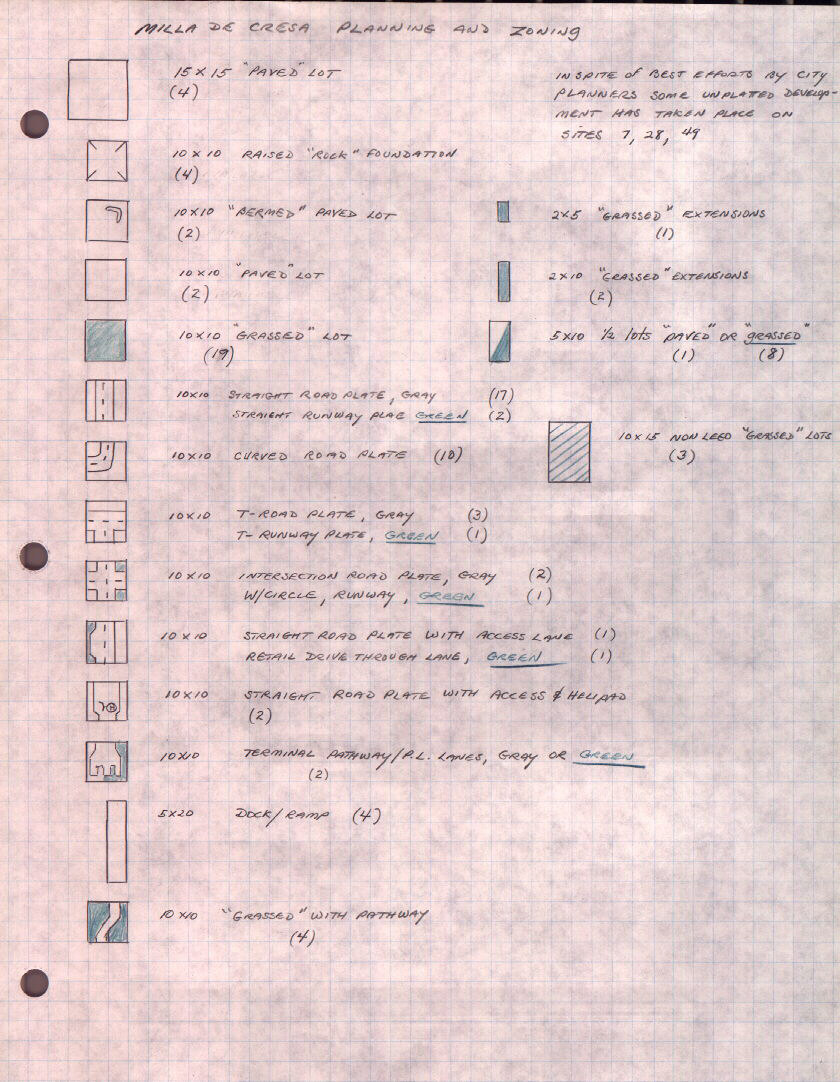 MILLA DE CRESA PLANNING AND ZONING
15 X 15 "PAVED" LOT
(4)
IN SPITE OF BEST EFFORTS BY CITY
PLANNERS SOME UNPLATED DEVELOP-
MENT HAS TAKEN PLACE ON
SITES 7, 28, 49
10 X 10 RAISED "ROCK" FOUNDATION
(4)
10X10 "BERMED" PAVED LOT
(2)
2X5 "GRASSED" EXTENSIONS
(1)
10X10 "PAVED" LOT
(2)
2X10 "GRASSED" EXTENSIONS
(2)
10X10 "GRASSED" LOT
(19)
5X10 1/2 lots "PAVED" OR "GRASSED"
(1) (8)
10X10 STRAIGHT ROAD PLATE, GRAY (17)
STRAIGHT RUNWAY PLAE GREEN (2)
10X15 NON LEGO "GRASSED" LOTS
(3)
10X10 CURVED ROAD PLATE (10)
10X10 T-ROAD PLATE, GRAY (3)
T-RUNWAY PLATE, GREEN (1)
10X10 INTERSECTION ROAD PLATE, GRAY (2)
W/CIRCLE, RUNWAY, GREEN (1)
10X10 STRAIGHT ROAD PLATE WITH ACCESS LANE (1)
RETAIL DRIVE THROUGH LANE, GREEN (1)
H
10X10 STRAIGHT ROAD PLATE WITH ACCESS & HELIPAD
(2)
10X10 TERMINAL PATHWAY/P.L. LANES, GRAY OR GREEN
(2)
5X20 DOCK/RAMP (4)
10X10 "GRASSED" WITH PATHWAY
(4)